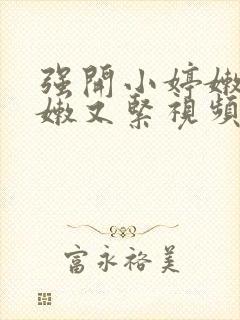 强開小婷嫩
嫩又緊視頻
富永裕美